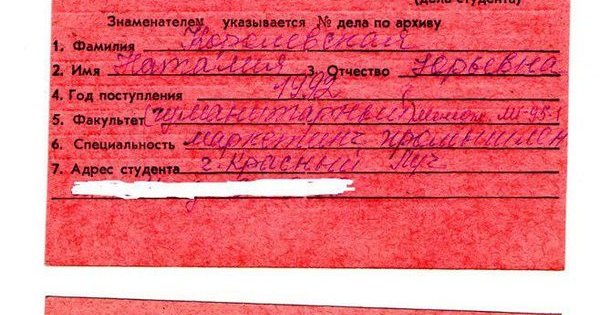 (дела студента)
Знаменателем указывается № дела по архиву
1. Фамилия Королевская
2. Имя Наталия 3. Отчество Юрьевна
4. Год поступления 1992
5. Факультет (гуманитарный)
6. Специальность маркетинг
7. Адрес студента г. Красный Луч